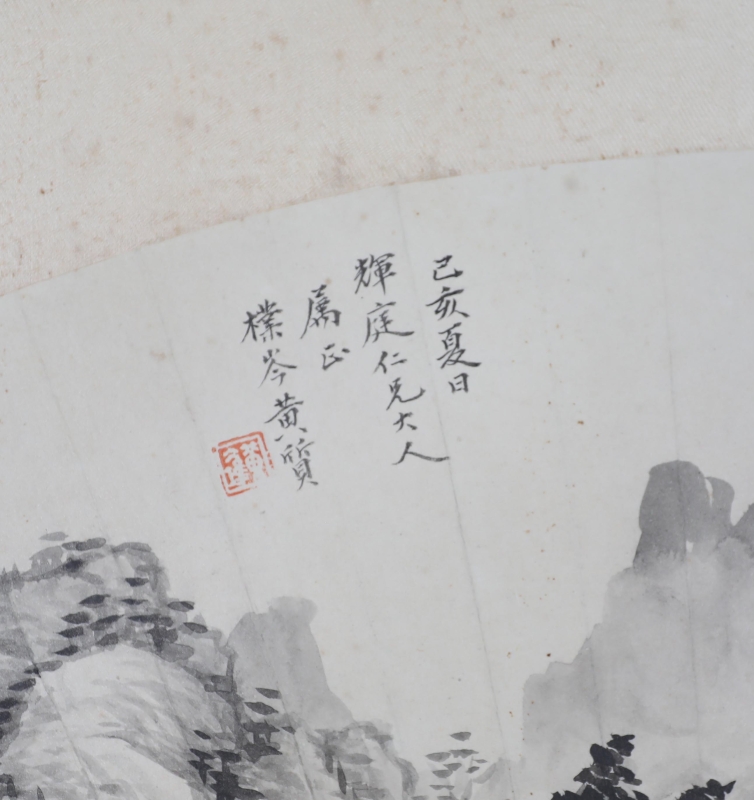 己亥夏日
輝庭仁兄大人
屬正
樸岑黃質